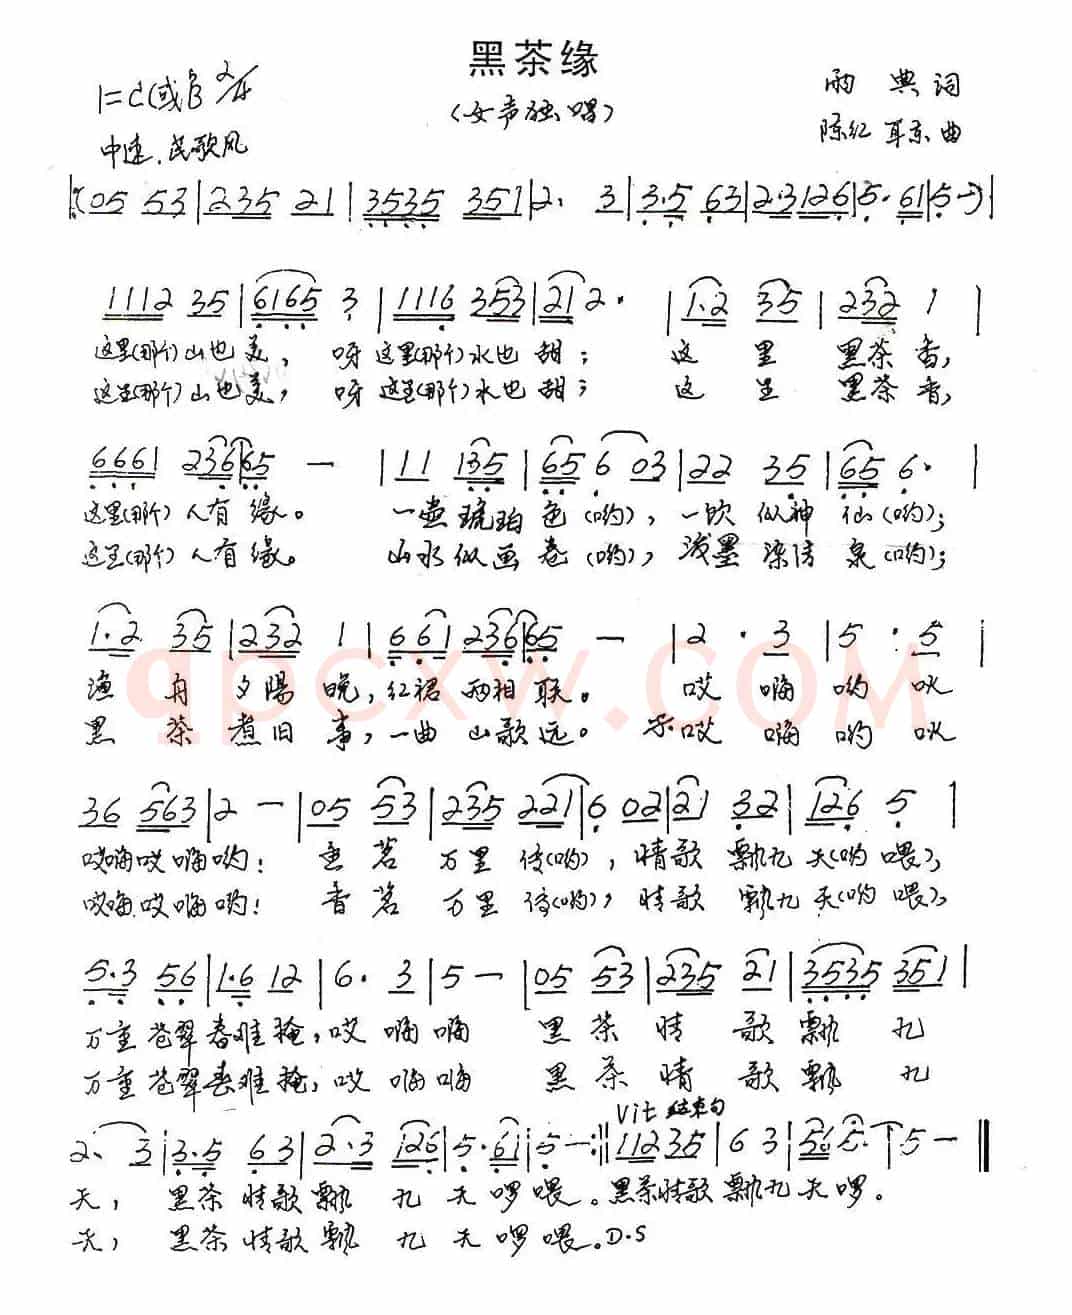 黑茶缘
（女声独唱）
1=C(或B 2/4
雨典词
中速.民歌风
陈红 耳东曲
(05 53|235 21|3535 351|2. 3|3.5 63|2.3 126|5. 61|5 -)|
1112 35|6165 3|1116 353|21 2.|1.2 35|232 1|
这里(那个)山也美，呀这里(那个)水也甜；这里黑茶香，
这里(那个)山也美，呀这里(那个)水也甜；这里黑茶香，
6661 236|65 -|11 135|65 6 03|22 35|65 6.|
这里(那个)人有缘。一壶琥珀色(哟)，一饮似神仙(哟)；
这里(那个)人有缘。山水似画卷(哟)，泼墨染清泉(哟)；
1.2 35|232 1|661 236|65 -|2. 3|5. 5|
渔舟夕阳晚，红裙两相联。哎嗨哟吙
黑茶煮旧事，一曲山歌远。哎嗨哟吙
36 563|2 -|05 53|235 221|6 02|21 32|126 5|
哎嗨哎嗨哟！香茗万里传(哟)，情歌飘九天(哟喂)，
哎嗨哎嗨哟！香茗万里传(哟)，情歌飘九天(哟喂)，
5.3 56|1.6 12|6. 3|5 -|05 53|235 21|3535 351|
万重苍翠春难掩，哎嗨嗨黑茶情歌飘九
万重苍翠春难掩，哎嗨嗨黑茶情歌飘九
Vit 结束句
2. 3|3.5 63|2.3 126|5. 61|5 -:||112 35|63|565.|5 -||
天，黑茶情歌飘九天啰喂。黑茶情歌飘九天啰。
天，黑茶情歌飘九天啰喂。D.S
qpcxw.com